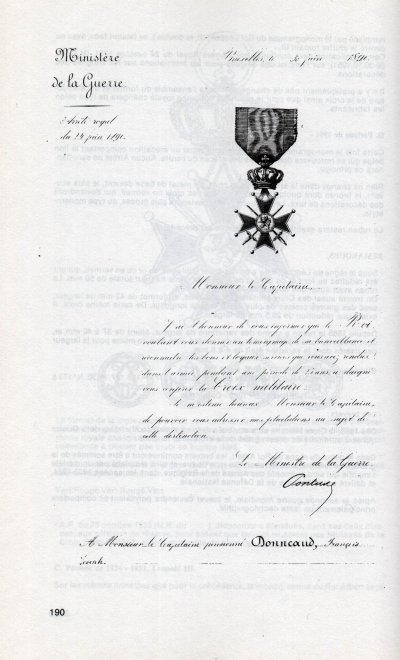 Ministère
Bruxelles, le 30 juin 1890.
de la Guerre
Arrêté royal
du 24 juin 1890.
Monsieur le Capitaine,
J'ai l'honneur de vous informer que le Roi
voulant vous donner un témoignage de sa bienveillance et
reconnaître les bons et loyaux services que vous avez rendus
dans l'armée pendant une période de 25 ans, a daigné
vous conférer la Croix militaire.
Je m'estime heureux Monsieur le Capitaine,
de pouvoir vous adresser mes félicitations au sujet de
cette distinction.
Le Ministre de la Guerre
Pontus
A Monsieur le Capitaine pensionné Donneaud, François
Joseph.
190